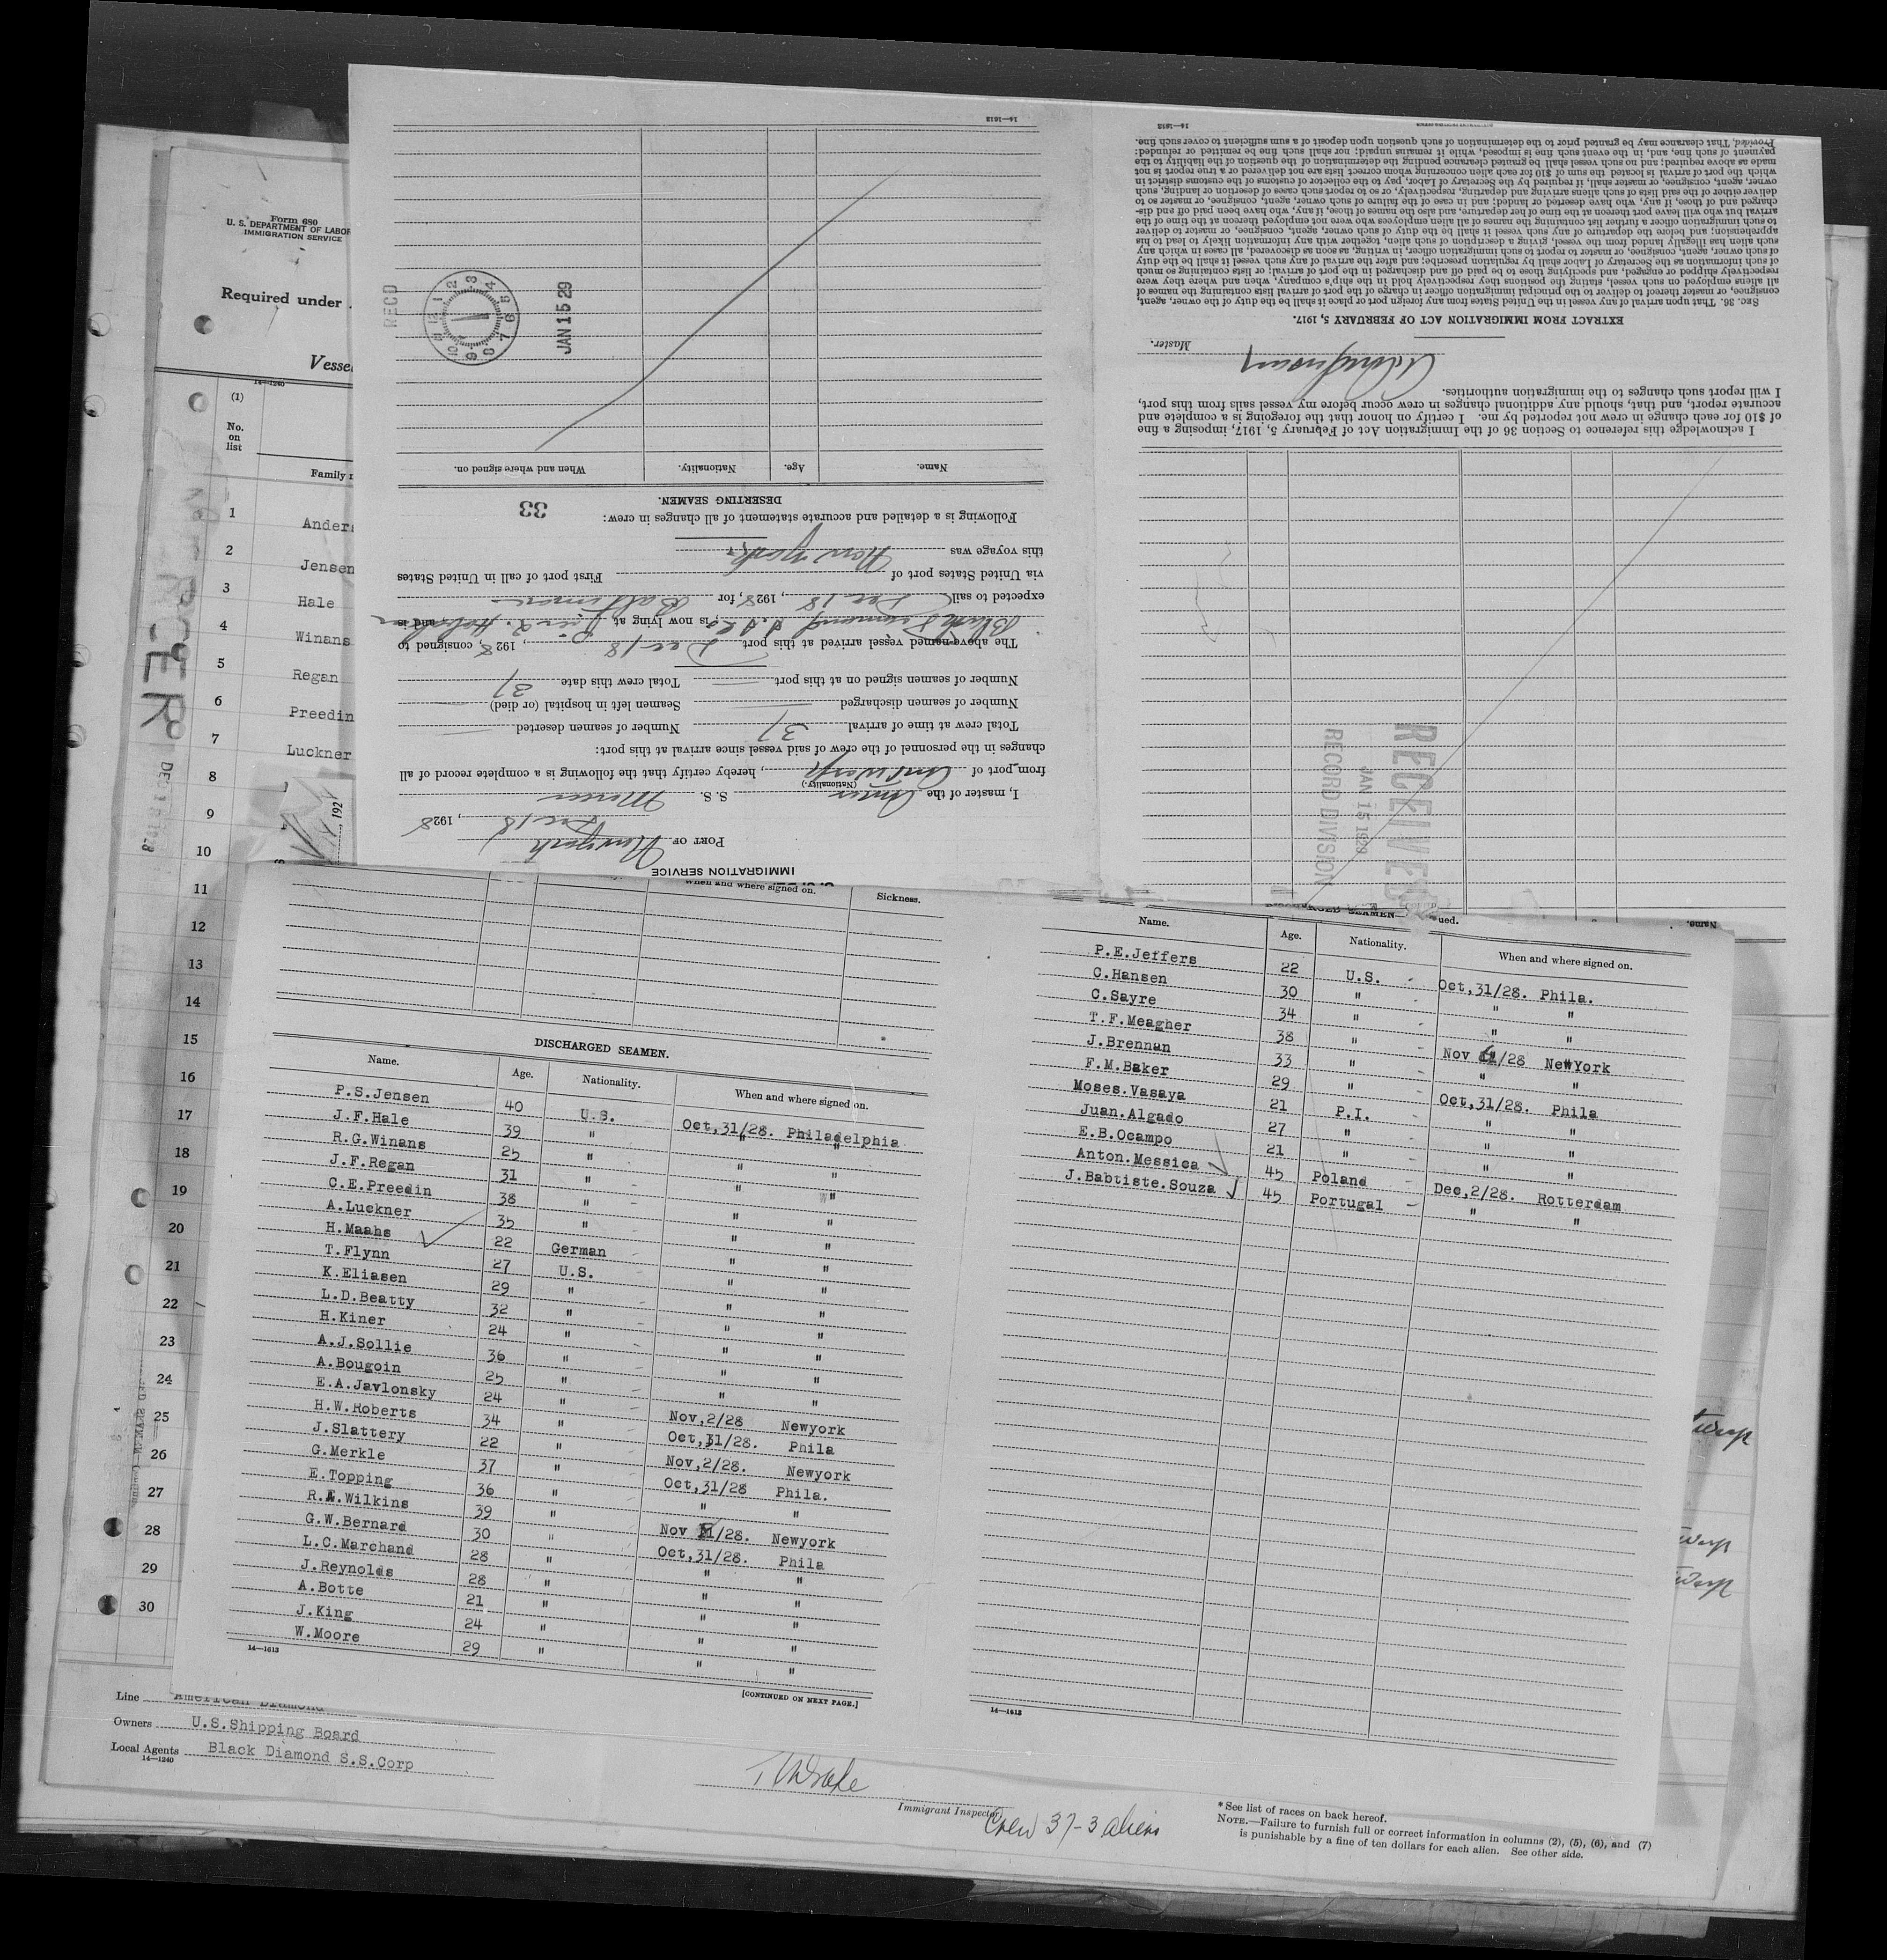 Form 680
U. S. DEPARTMENT OF LABOR
IMMIGRATION SERVICE
Required under
Vessel
14—1240
(1)
No.
on
list
Family
1 Anders
2 Jensen
3 Hale
4 Winans
5 Regan
6 Preedin
7 Luckner
8
9
10
11
12
13
14
15
16
17
18
19
20
21
22
23
24
25
26
27
28
29
30
, 192
Line American Diamond
Owners U.S.Shipping Board
Local Agents Black Diamond S.S.Corp
14—1240
Immigrant Inspector
Crew 37-3 aliens
* See list of races on back hereof.
NOTE.—Failure to furnish full or correct information in columns (2), (5), (6), and (7)
is punishable by a fine of ten dollars for each alien. See other side.
IMMIGRATION SERVICE
PORT OF New York
Dec 18, 1928
I, master of the Amer S. S.
(Nationality.)
from port of Antwerp, hereby certify that the following is a complete record of all
changes in the personnel of the crew of said vessel since arrival at this port:
Total crew at time of arrival 37 Number of seamen deserted
Number of seamen discharged Seamen left in hospital (or died)
Number of seamen signed on at this port Total crew this date 37
The above-named vessel arrived at this port Dec 18, 1928, consigned to
Black Diamond S.S.Co, is now lying at Pier 2. Hoboken and is
expected to sail Dec 18, 1928, for Baltimore
via United States port of First port of call in United States
this voyage was New York
Following is a detailed and accurate statement of all changes in crew:
33
DESERTING SEAMEN.
Name. Age. Nationality. When and where signed on.
REC'D
JAN 15 29
14—1613
Name.
RECEIVED
JAN 15 1929
RECORD DIVISION
I acknowledge this reference to Section 36 of the Immigration Act of February 5, 1917, imposing a fine
of $10 for each change in crew not reported by me. I certify on honor that the foregoing is a complete and
accurate report, and that, should any additional changes in crew occur before my vessel sails from this port,
I will report such changes to the immigration authorities.
Master.
EXTRACT FROM IMMIGRATION ACT OF FEBRUARY 5, 1917.
Sec. 36. That upon arrival of any vessel in the United States from any foreign port or place it shall be the duty of the owner, agent,
consignee, or master thereof to deliver to the principal immigration officer in charge of the port of arrival lists containing the names of
all aliens employed on such vessel, stating the positions they respectively hold in the ship's company, when and where they were
respectively shipped or engaged, and specifying those to be paid off and discharged in the port of arrival; or lists containing so much
of such information as the Secretary of Labor shall by regulation prescribe; and after the arrival of any such vessel it shall be the duty
of such owner, agent, consignee, or master to report to such immigration officer, in writing, as soon as discovered, all cases in which any
such alien has illegally landed from the vessel, giving a description of such alien, together with any information likely to lead to his
apprehension; and before the departure of any such vessel it shall be the duty of such owner, agent, consignee, or master to deliver
to such immigration officer a further list containing the names of all alien employees who were not employed thereon at the time of the
arrival but who will leave port thereon at the time of her departure, and also the names of those, if any, who have been paid off and dis-
charged and of those, if any, who have deserted or landed; and in case of the failure of such owner, agent, consignee, or master so to
deliver either of the said lists of such aliens arriving and departing, respectively, or so to report such cases of desertion or landing, such
owner, agent, consignee, or master shall, if required by the Secretary of Labor, pay to the collector of customs of the customs district in
which the port of arrival is located the sum of $10 for each alien concerning whom correct lists are not delivered or a true report is not
made as above required; and no such vessel shall be granted clearance pending the determination of the question of the liability to the
payment of such fine, and, in the event such fine is imposed, while it remains unpaid; nor shall such fine be remitted or refunded:
Provided, That clearance may be granted prior to the determination of such question upon deposit of a sum sufficient to cover such fine.
14—1613
When and where signed on. Sickness.
DISCHARGED SEAMEN.
Name. Age. Nationality. When and where signed on.
P.S.Jensen 40 U.S. Oct,31/28. Philadelphia
J.F.Hale 39 " " "
R.G.Winans 25 " " "
J.F.Regan 31 " " "
C.E.Preedin 38 " " "
A.Luckner 35 " " "
H.Maahs 22 German " "
T.Flynn 27 U.S. " "
K.Eliasen 29 " " "
L.D.Beatty 32 " " "
H.Kiner 24 " " "
A.J.Sollie 36 " " "
A.Bougoin 25 " " "
E.A.Javlonsky 24 " " "
H.W.Roberts 34 " Nov,2/28 Newyork
J.Slattery 22 " Oct,31/28. Phila
G.Merkle 37 " Nov,2/28. Newyork
E.Topping 36 " Oct,31/28 Phila.
R.A.Wilkins 39 " " "
G.W.Bernard 30 " Nov 1/28. Newyork
L.C.Marchand 28 " Oct,31/28. Phila
J.Reynolds 28 " " "
A.Botte 21 " " "
J.King 24 " " "
W.Moore 29 " " "
14—1613
[CONTINUED ON NEXT PAGE.]
Name. Age. Nationality. When and where signed on.
P.E.Jeffers 22 U.S. Oct,31/28. Phila.
C.Hansen 30 " " "
C.Sayre 34 " " "
T.F.Meagher 38 " Nov 1/28 NewYork
J.Brennan 33 " " "
F.M.Baker 29 " Oct,31/28. Phila
Moses.Vasaya 21 P.I. " "
Juan.Algado 27 " " "
E.B.Ocampo 21 " " "
Anton.Messica 45 Poland Dec,2/28. Rotterdam
J.Babtiste.Souza 45 Portugal " "
14—1613